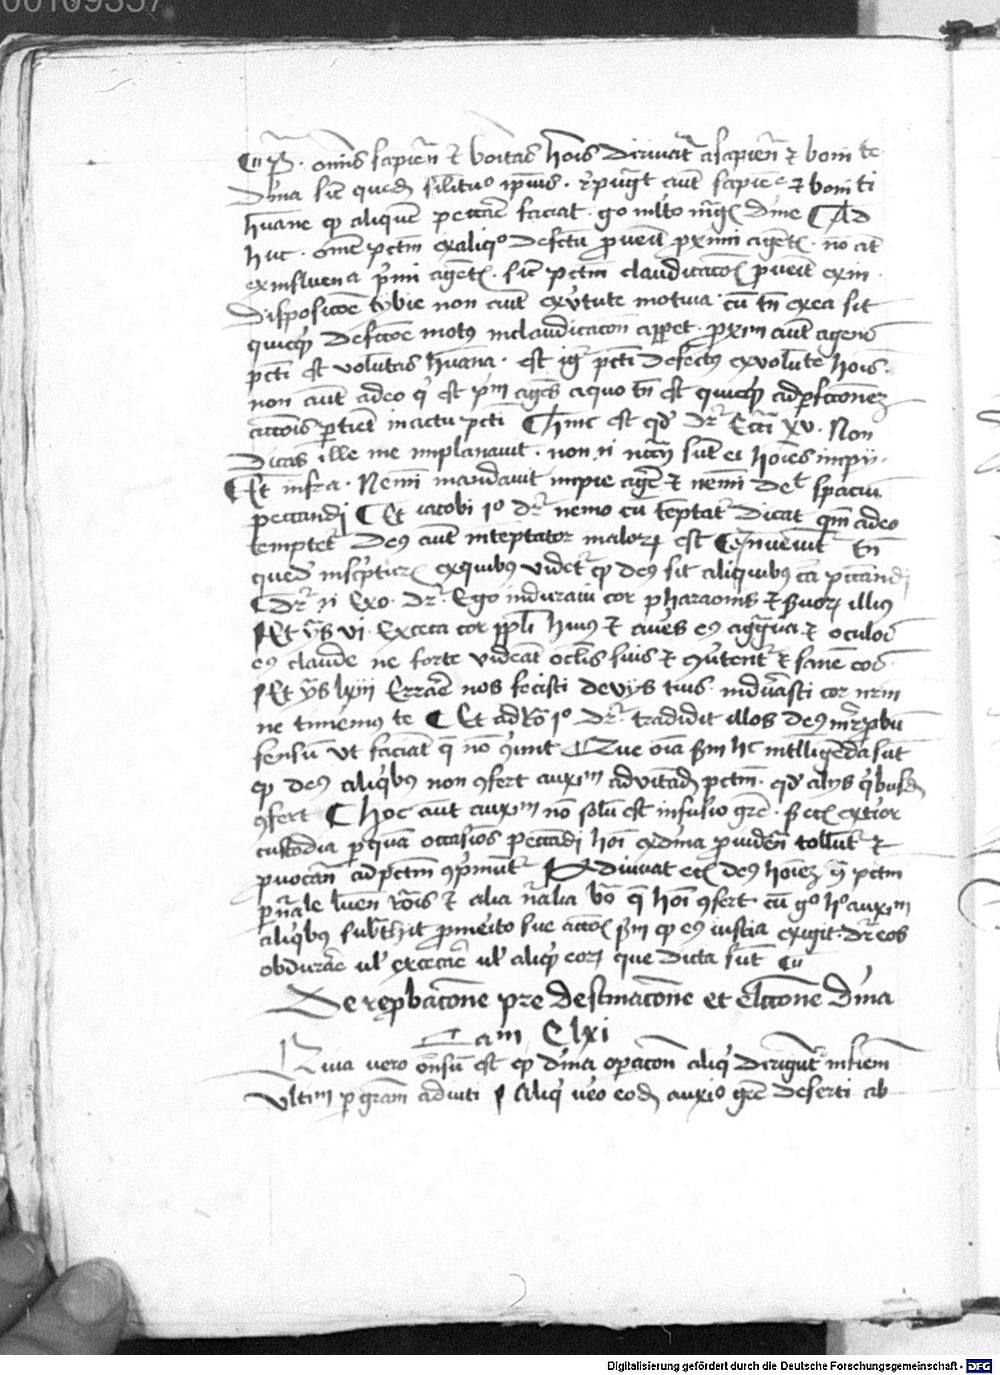 00109357
¶ Pr. omnis sapien & bonitas hois dirivat asapien & boni te
divina sic quedam silitudo ipsius. rpugt aut sapie & boni ti
humane qp aliquem peccare faciat. go mlto magis dine ¶ Ad
huc. omne pctm ex aliqo defectu pvenit pximi agentis. no at
ex influena pmi agentis. sic pctm claudicacois pvenit ex in
disposicoe tybie non aut ex vtute motiva. cu tn ex ea sit
quicqp de pfectoe motus in claudicacoe apparet. pxim aut agens
pcti est voluntas humana. est igr pcti defectus ex volute hois.
non aut a deo qui est pm agens a quo tn est quicqp ad pfectionem
accois ptinet in actu pcti ¶ hinc est qd dr Ecci xv. Non
dicas ille me implanavit. non n necessarii sut ei hoies impii.
¶ Et infra. Nemini mandavit impie agere & nemini dedit spaciu
peccandi ¶ Et iacobi 1o dr nemo cu temptatr dicat qm a deo
temptetr deus aut intemptator malorum est ¶ Inveniuntur tn
quedam in scripturis ex quibus videtr qp deus sit aliquibus ca peccandi
¶ dr n Exo. dr. Ego induravi cor pharaonis & servorum illius
¶ Et ys vi. Exceca cor ppli huius & aures eius aggrava & oculos
eius claude ne forte videat oclis suis & convertentr & sanem eos
¶ Et ys lxiii Errare nos fecisti de viis tuis. indurasti cor nrm
ne timemus te ¶ Et ad Ro 1o dr. tradidit illos deus in reprobu
sensu ut faciat que no conveniunt ¶ Que oia sm hc intelligenda sut
qp deus aliqbus non confert auxim ad vitandum pctm. qd aliis qbusdam
confert ¶ Hoc aut auxim no solu est infusio gre. sed etia exterior
custodia p quam occasiones peccandi hoi ex divina providen tollutr &
provocan ad pctm compmutr ¶ Adiuvat etia deus hoiem contra pctm
p nrale lumen rois & alia nralia bona que hoi confert. cu go hec auxim
aliqbus subtrahit pro merito sue accois sm qp eius iustia exigit. dr eos
obdurare vel excecare vel aliquid eorum que dicta sut ¶
De reprobacone pre destinacone et eleccone divina
Cam Clxi
Quia vero onsum est qp divina opacon aliqui diriguntr in finem
vltim p gram adiuti ¶ Aliqui vero eodem auxio gre deserti ab
Digitalisierung gefördert durch die Deutsche Forschungsgemeinschaft - DFG